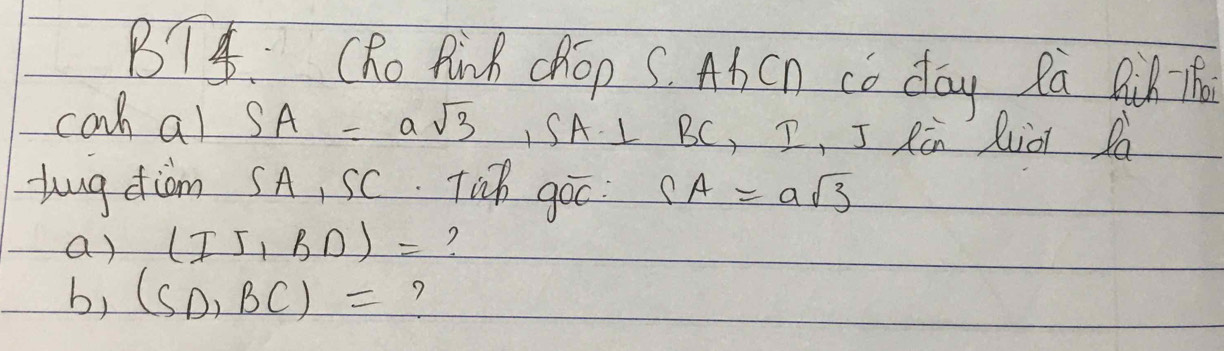 BT4: Cho hình chóp S.ABCD có đáy là hình thoi
cạnh a, SA = a√3, SA ⊥ BC, I, J lần lượt là
trung điểm SA, SC. Tính góc: SA = a√3
a) (IJ, BD) = ?
b, (SD, BC) = ?